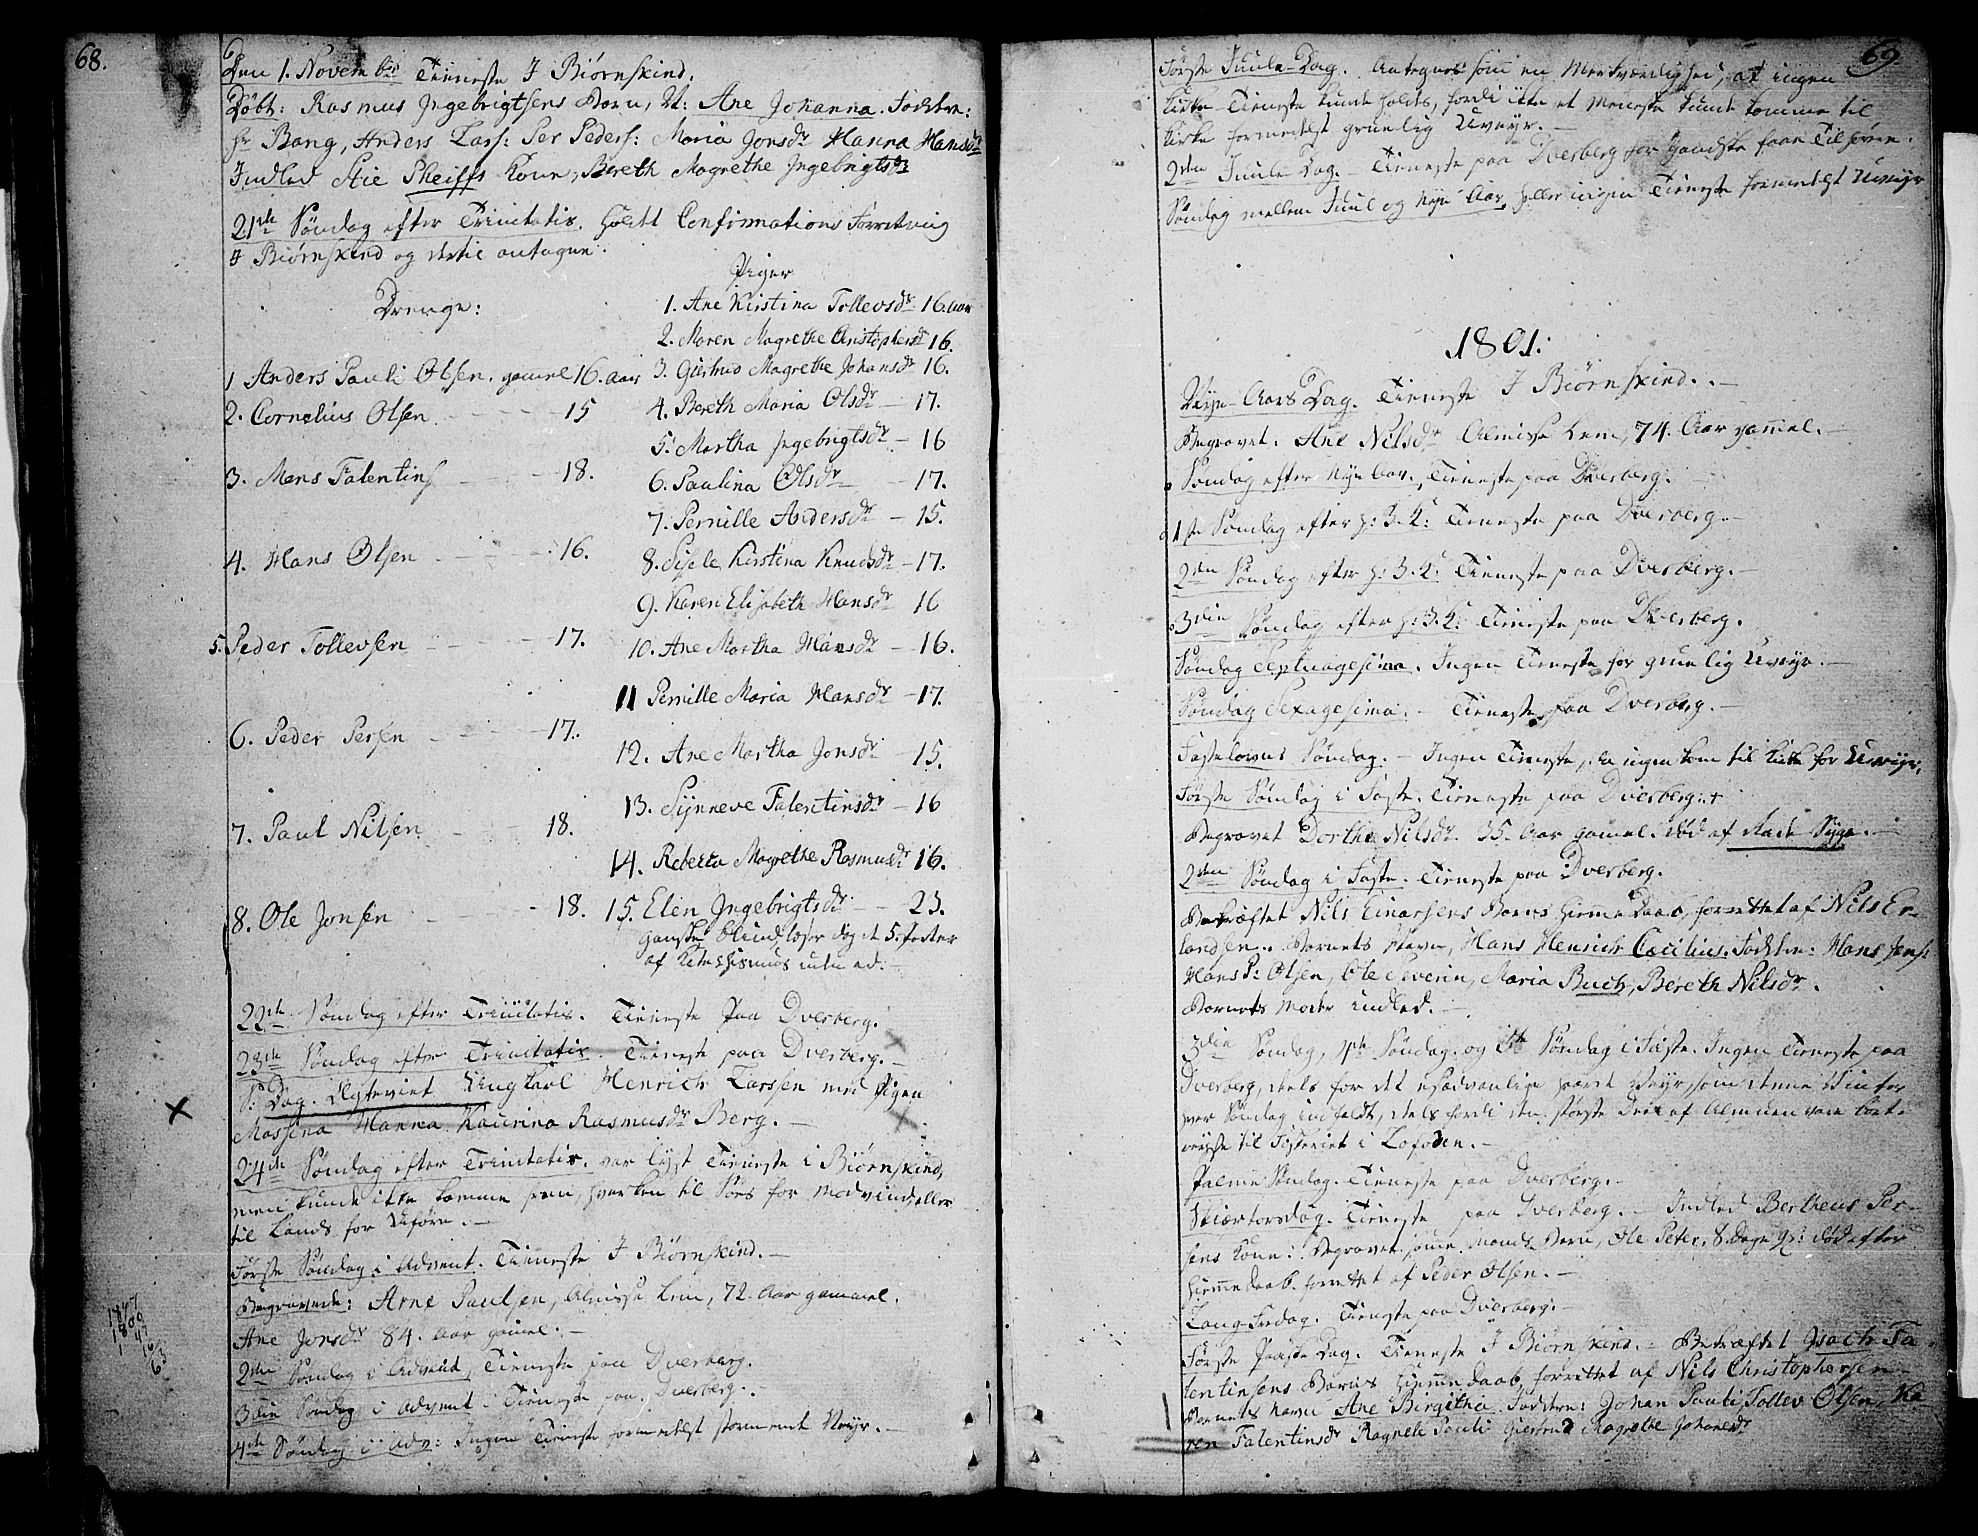 68.
Den 1. Novembr Tieneste I Biørnskind.
Døbt: Rasmus Ingebrigtsens Barn, N: Ane Johanna. Faddere:
Hr Bang, Anders Lars: Per Peders: Maria Jonsdr Hanna Hansdr
Indled Stie Pheiffs Kone, Bereth Magrethe Ingebrigtsdr
21de Søndag efter Trinitatis. Holdt Confirmations Forretning
I Biørnskind og dertil antagne:
Drenge:
1 Anders Pauli Olsen. gamel 16. Aar
2. Cornelius Olsen 15
3. Mens Falentins 18.
4. Hans Olsen 16.
5. Peder Tollevsen 17.
6. Peder Persen 17.
7. Paul Nilsen 18.
8. Ole Jonsen 18.
Piger
1. Ane Kirstina Tollevsdr 16. Aar
2. Maren Magrethe Christophersdr 16.
3. Giertrud Magrethe Johansdr 16.
4. Bereth Maria Olsdr 17.
5. Martha Ingebrigtsdr 16
6. Paulina Olsdr 17.
7. Pernille Andersdr 15.
8. Sisele Kirstina Knudsdr 17.
9. Karen Elisabeth Hansdr 16
10. Ane Martha Hansdr 16.
11 Pernille Maria Hansdr 17.
12. Ane Martha Jonsdr 15.
13. Synneve Falentinsdr 16
14. Rebecca Magrethe Rasmusdr 16.
15. Elen Ingebrigtsdr 23.
ganske blind, læser dog de 5. Parter
af Catechismus uden ad.
22de Søndag efter Trinitatis. Tieneste paa Dverberg.
23de Søndag efter Trinitatis. Tieneste paa Dverberg.
S: Dag. Egteviet Ungkarl Henrich Larssen med Pigen
Massina Hanna Kaurina Rasmusdr Berg.
24de Søndag efter Trinitatis. var lyst Tieneste i Biørnskind,
men kunde ikke komme frem, hverken til Søes for Modvind eller
til Lands for Uføre.
Første Søndag i Advent. Tieneste I Biørnskind.
Begravede: Arne Paulsen, Almisse Lem, 72. Aar gammel.
Ane Jonsdr 84. Aar gamel.
2den Søndag i Advent, Tieneste paa Dverberg.
3die Søndag i Advent Tieneste paa Dverberg.
4de Søndag i Adv: Ingen Tieneste formedelst stormende Veyr.
1847
1800
47
16
63
69.
Første Juule-Dag. Antegnes som en Merkværdighed, at ingen
Kirke-Tieneste kunde holdes, fordi ikke et Meneske kunde komme til
Kirke formedelst gruelig Uveyr.
2den Juule-Dag. Tieneste paa Dverberg for ganske faae Tilhørere.
Søndag mellem Juul og Nye Aar, heller ingen Tieneste formedelst Uveyr
1801.
Nye-Aars Dag. Tieneste I Biørnskind.
Begravet. Ane Nilsdr Almisse Lem, 74. Aar gammel.
Søndag efter Nye Aar. Tieneste paa Dverberg.
1ste Søndag efter h: 3. K: Tieneste paa Dverberg.
2den Søndag efter h: 3. K: Tieneste paa Dverberg.
3die Søndag efter h: 3. K: Tieneste paa Dverberg.
Søndag Septuagesima. Ingen Tieneste for gruelig Uveyr.
Søndag Sexagesima. Tieneste paa Dverberg.
Fastelavns Søndag. Ingen Tieneste, da ingen kom til Kirke for Uveyr.
Første Søndag i Faste. Tieneste paa Dverberg.
Begravet Dorthe Nilsdr. 35. Aar gamel. død af Rade Syge.
2den Søndag i Faste. Tieneste paa Dverberg.
Bekræftet Nils Einarsens Barns Hiemmedaab, forrettet af Nils Er-
landsen. Barnets Navn, Hans Henrich Cæcilius. Faddere: Hans Jens:
Hans P: Olsen, Ole Severin, Maria Buch, Bereth Nilsdr.
Barnets Moder indled.
3die Søndag, 4de Søndag og 5te Søndag i Faste. Ingen Tieneste paa
Dverberg, deels for det usædvanlige haarde Veyr, som denne Vinter
hver Søndag indfaldt, deels fordi den største Deel af Almuen vare bort-
reyste til Fiskeriet i Lofoden.
Palme Søndag. Tieneste paa Dverberg.
Skiærtorsdag. Tieneste paa Dverberg. Indled Bertheus Per-
sens Kone. Begravet samme Mands Barn, Ole Peter, 8. Dage gl: død efter
Hiemmedaab forrettet af Peder Olsen.
Lang-Fredag. Tieneste paa Dverberg.
Første Paaske Dag. Tieneste I Biørnskind. Bekræftet Isach Fa-
lentinsens Barns Hiemmedaab, forrettet af Nils Christophersen
Barnets Navn Ane Birgitha. Faddere: Johan Pauli, Tollev Olsen, Ka-
ren Falentinsdr Ragnele Pauli Giertrud Magrethe Johansdr